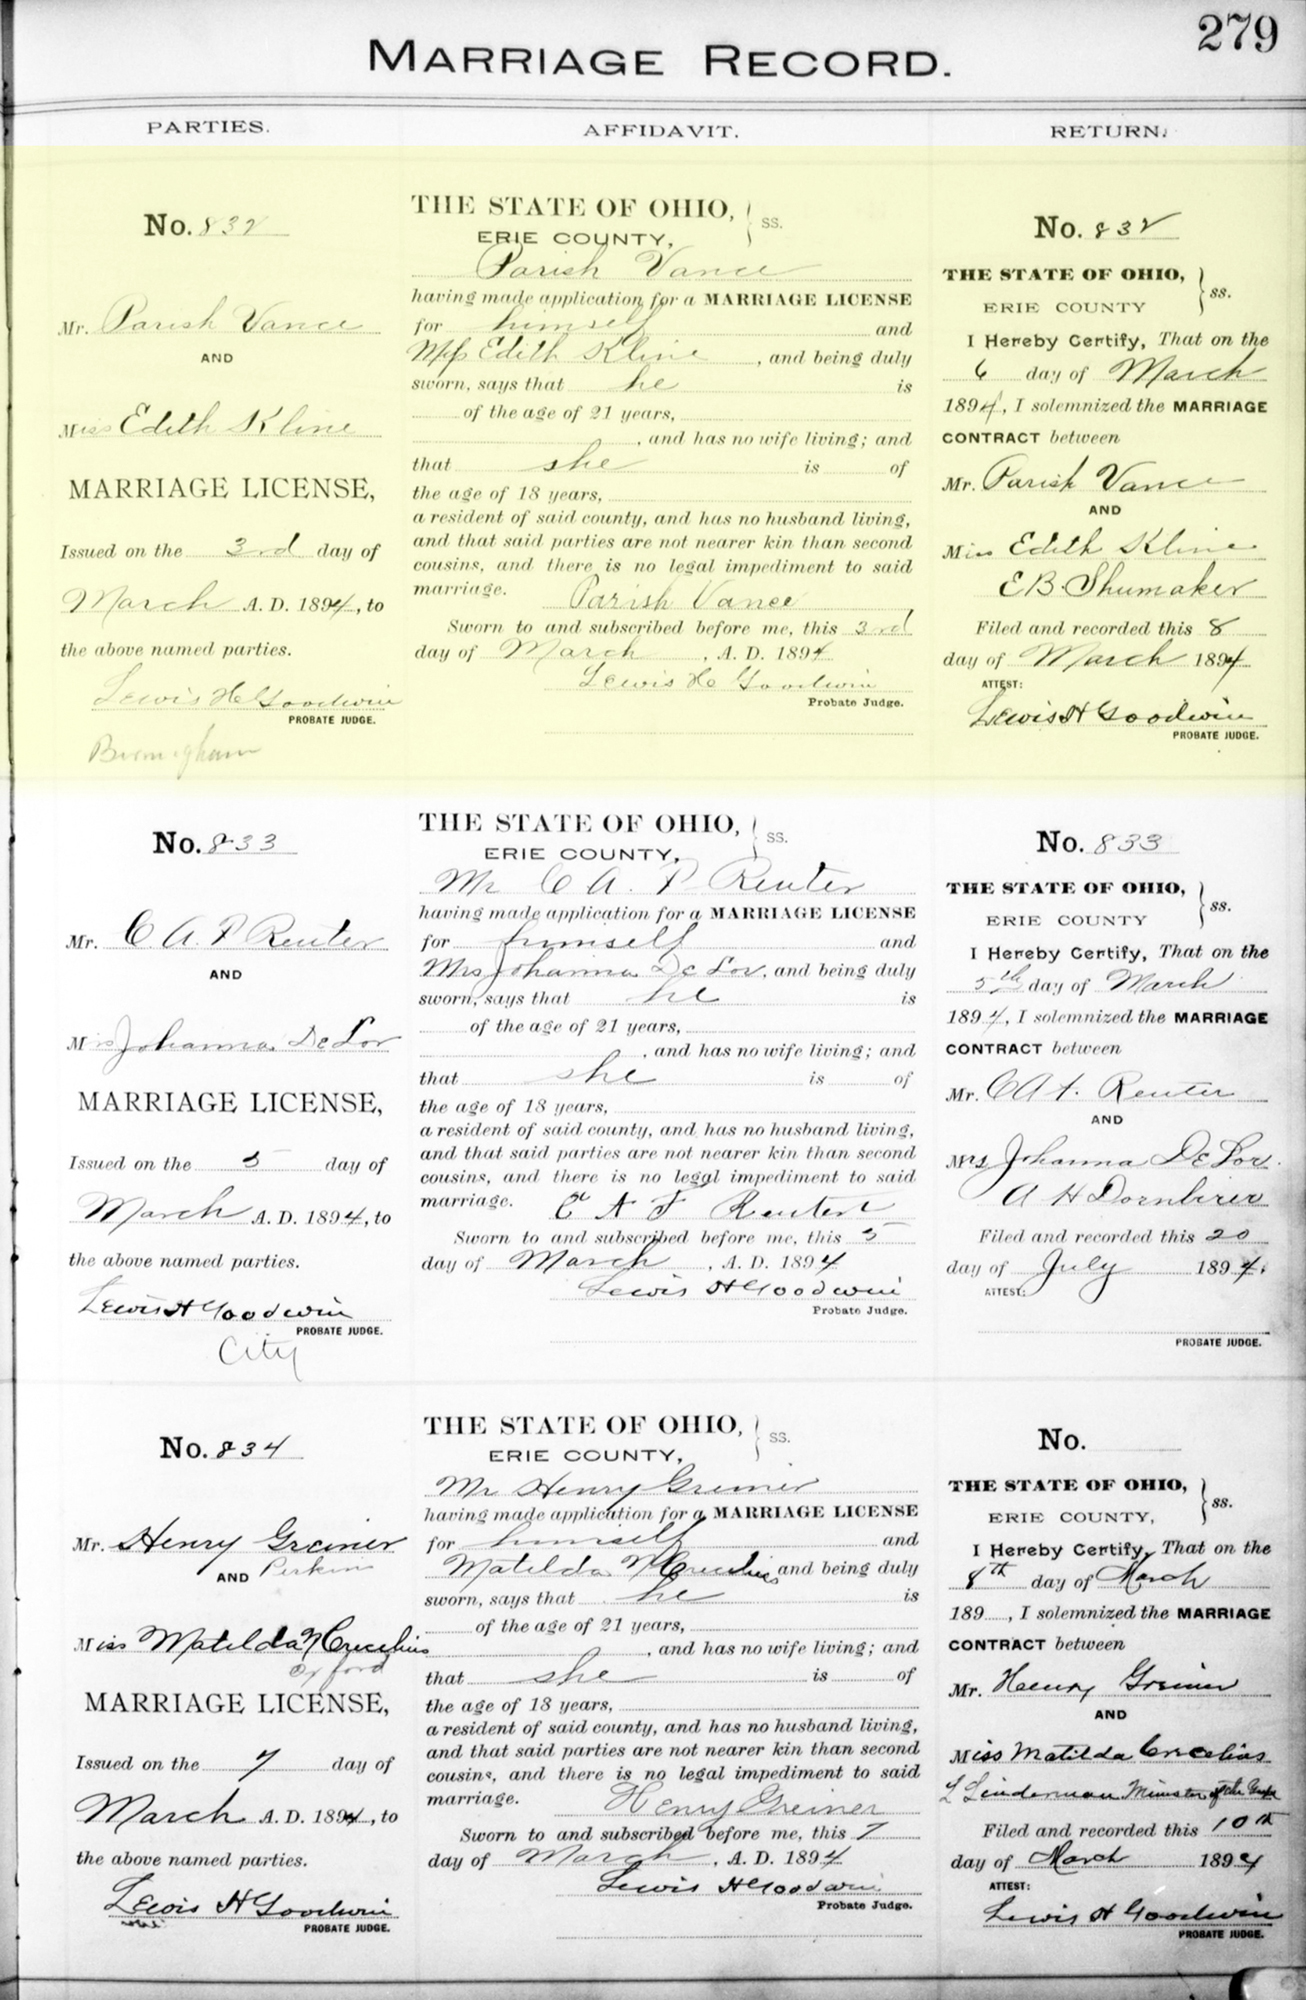 279
MARRIAGE RECORD.
PARTIES.
AFFIDAVIT.
RETURN.
No. 832
Mr. Parish Vance
AND
Miss Edith Kline
MARRIAGE LICENSE,
Issued on the 3rd day of
March A. D. 1894, to
the above named parties.
Lewis H Goodwin
PROBATE JUDGE.
Birmingham
THE STATE OF OHIO, } ss.
ERIE COUNTY,
Parish Vance
having made application for a MARRIAGE LICENSE
for himself and
Miss Edith Kline, and being duly
sworn, says that he is
of the age of 21 years,
, and has no wife living; and
that she is of
the age of 18 years,
a resident of said county, and has no husband living,
and that said parties are not nearer kin than second
cousins, and there is no legal impediment to said
marriage. Parish Vance
Sworn to and subscribed before me, this 3rd
day of March, A. D. 1894
Lewis H Goodwin
Probate Judge.
No. 832
THE STATE OF OHIO, } ss.
ERIE COUNTY
I Hereby Certify, That on the
6 day of March
1894, I solemnized the MARRIAGE
CONTRACT between
Mr. Parish Vance
AND
Miss Edith Kline
E B Shumaker
Filed and recorded this 8
day of March 1894
ATTEST:
Lewis H Goodwin
PROBATE JUDGE.
No. 833
Mr. C A. F Reuter
AND
Mrs Johanna De Lor
MARRIAGE LICENSE,
Issued on the 5 day of
March A. D. 1894, to
the above named parties.
Lewis H Goodwin
PROBATE JUDGE.
City
THE STATE OF OHIO, } ss.
ERIE COUNTY,
Mr C A. F Reuter
having made application for a MARRIAGE LICENSE
for himself and
Mrs Johanna De Lor, and being duly
sworn, says that he is
of the age of 21 years,
, and has no wife living; and
that she is of
the age of 18 years,
a resident of said county, and has no husband living,
and that said parties are not nearer kin than second
cousins, and there is no legal impediment to said
marriage. C A F
Sworn to and subscribed before me, this 5
day of March, A. D. 1894
Lewis H Goodwin
Probate Judge.
No. 833
THE STATE OF OHIO, } ss.
ERIE COUNTY
I Hereby Certify, That on the
5th day of March
1894, I solemnized the MARRIAGE
CONTRACT between
Mr. C A F. Reuter
AND
Mrs Johanna De Lor.
A H Dornbirer
Filed and recorded this 20
day of July 1894.
ATTEST:
PROBATE JUDGE.
No. 834
Mr. Henry Greiner
AND Perkins
Miss Matilda N Crecelius
Oxford
MARRIAGE LICENSE,
Issued on the 7 day of
March A. D. 1894, to
the above named parties.
Lewis H Goodwin
PROBATE JUDGE.
THE STATE OF OHIO, } ss.
ERIE COUNTY,
Mr Henry Greiner
having made application for a MARRIAGE LICENSE
for himself and
Matilda N Crecelius and being duly
sworn, says that he is
of the age of 21 years,
, and has no wife living; and
that she is of
the age of 18 years,
a resident of said county, and has no husband living,
and that said parties are not nearer kin than second
cousins, and there is no legal impediment to said
marriage. Henry Greiner
Sworn to and subscribed before me, this 7
day of March, A. D. 1894
Lewis H Goodwin
Probate Judge.
No.
THE STATE OF OHIO, } ss.
ERIE COUNTY,
I Hereby Certify, That on the
8th day of March
189 , I solemnized the MARRIAGE
CONTRACT between
Mr. Henry Greiner
AND
Miss Matilda Crecelius
L Linderman Minister of the
Filed and recorded this 10th
day of March 1894
ATTEST:
Lewis H Goodwin
PROBATE JUDGE.